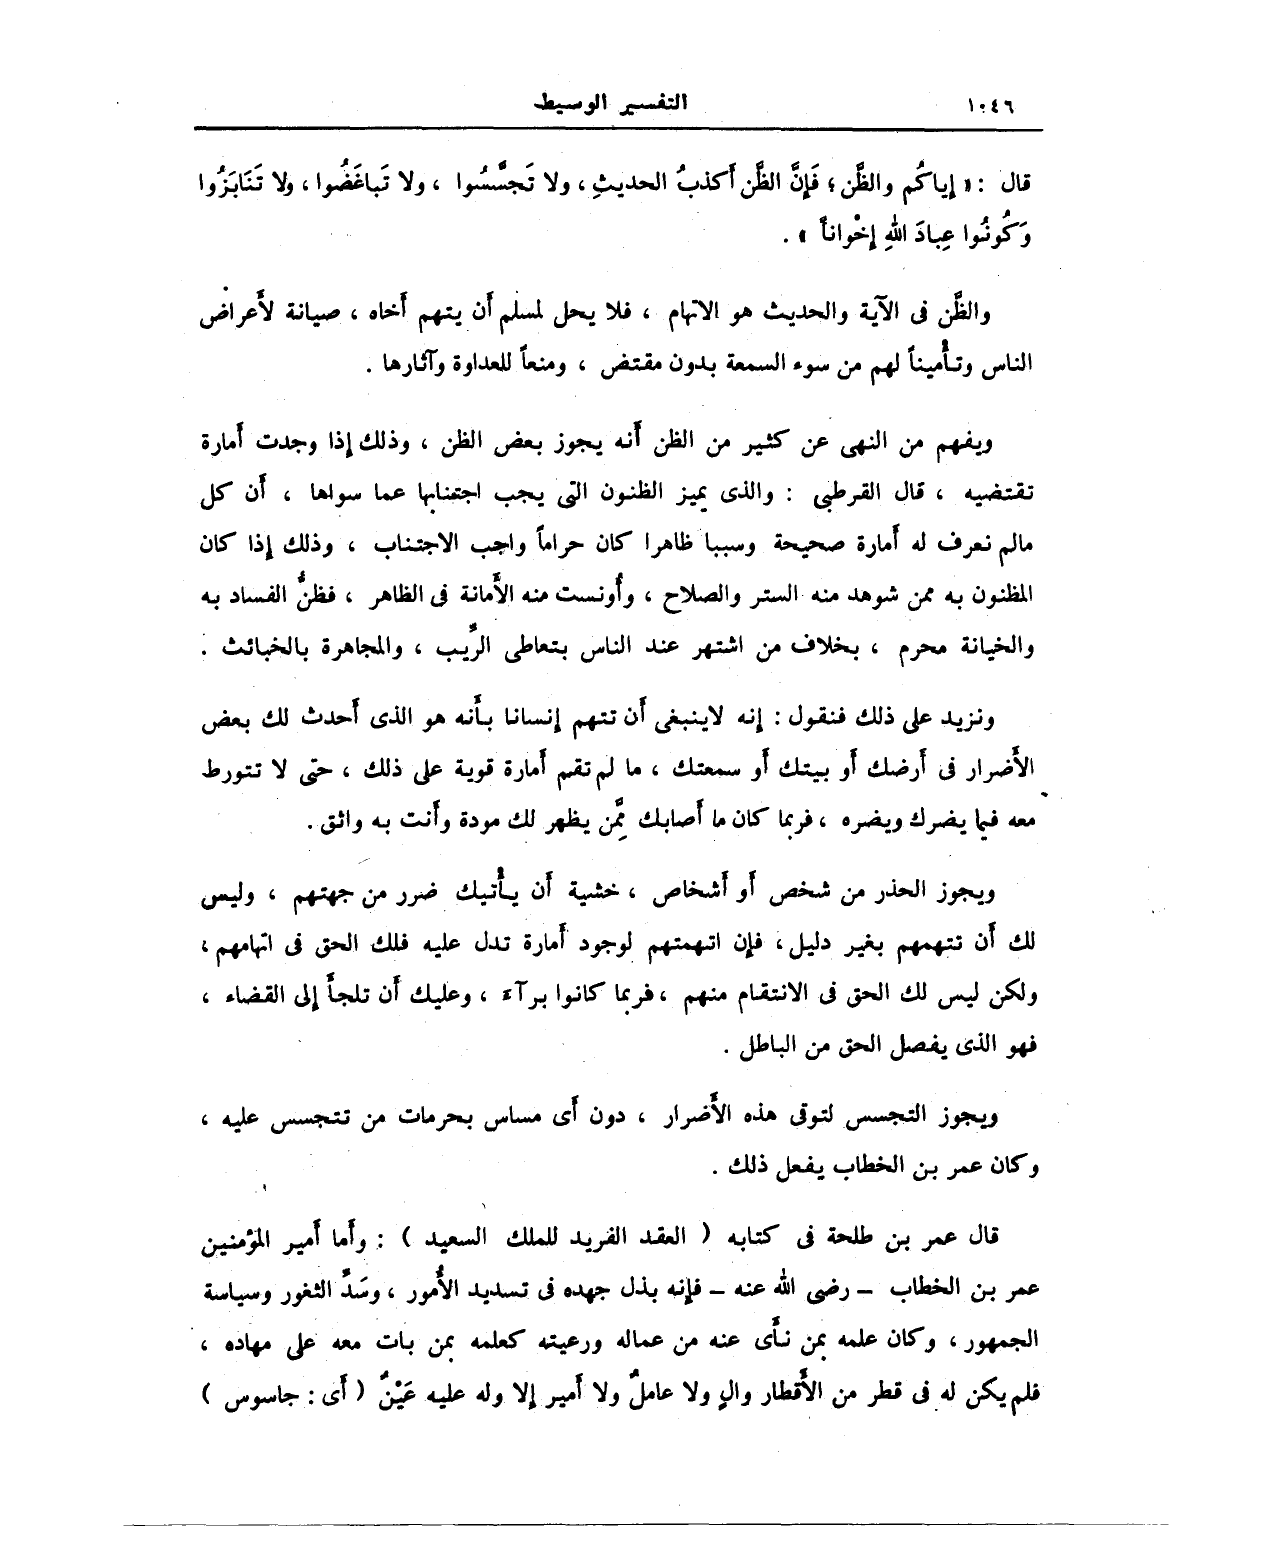 ١٠٤٦ التفسير الوسيط
قال : « إياكُم والظَّن ؛ فَإِنَّ الظَّن أَكذبُ الحديثِ ، ولا تَجسَّسُوا ، ولا تَباغَضُوا ، ولا تَنَابَزُوا
وَكُونُوا عِبادَ اللهِ إِخْواناً » .
والظَّن فى الآية والحديث هو الاتهام ، فلا يحل لمسلم أن يتهم أَخاه ، صيانة لأَعراض
الناس وتأْميناً لهم من سوء السمعة بدون مقتض ، ومنعاً للعداوة وآثارها .
ويفهم من النهى عن كثير من الظن أَنه يجوز بعض الظن ، وذلك إذا وجدت أَمارة
تقتضيه ، قال القرطبى : والذى يميز الظنون التى يجب اجتنابها عما سواها ، أَن كل
مالم نعرف له أَمارة صحيحة وسببا ظاهرا كان حراماً واجب الاجتناب ، وذلك إذا كان
المظنون به ممن شوهد منه الستر والصلاح ، وأُونست منه الأَمانة فى الظاهر ، فظنُّ الفساد به
والخيانة محرم ، بخلاف من اشتهر عند الناس بتعاطى الرِّيب ، والمجاهرة بالخبائث .
ونزيد على ذلك فنقول : إنه لاينبغى أَن تتهم إنسانا بأَنه هو الذى أَحدث لك بعض
الأَضرار فى أَرضك أَو بيتك أَو سمعتك ، ما لم تقم أَمارة قوية على ذلك ، حتى لا تتورط
معه فيما يضرك ويضره ، فربما كان ما أَصابك مِمَّن يظهر لك مودة وأَنت به واثق .
ويجوز الحذر من شخص أَو أَشخاص ، خشية أَن يأْتيك ضرر من جهتهم ، وليس
لك أَن تتهمهم بغير دليل ، فإن اتهمتهم لوجود أَمارة تدل عليه فلك الحق فى اتهامهم ،
ولكن ليس لك الحق فى الانتقام منهم ، فربما كانوا برآءَ ، وعليك أَن تلجأَ إلى القضاء ،
فهو الذى يفصل الحق من الباطل .
ويجوز التجسس لتوقى هذه الأَضرار ، دون أَى مساس بحرمات من تتجسس عليه ،
وكان عمر بن الخطاب يفعل ذلك .
قال عمر بن طلحة فى كتابه ( العقد الفريد للملك السعيد ) : وأَما أَمير المؤمنين
عمر بن الخطاب – رضى الله عنه – فإنه بذل جهده فى تسديد الأُمور ، وسَدِّ الثغور وسياسة
الجمهور ، وكان علمه بمن نأَى عنه من عماله ورعيته كعلمه بمن بات معه على مهاده ،
فلم يكن له فى قطر من الأَقطار والٍ ولا عاملٌ ولا أَمير إلا وله عليه عَيْنٌ ( أَى : جاسوس )